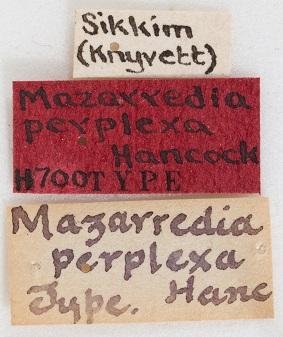 Sikkim
(Knyvett)
Mazarredia
perplexa
Hancock
H700TYPE
Mazarredia
perplexa
Type. Hanc